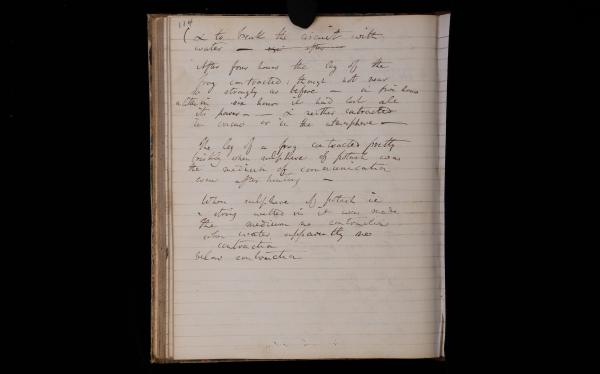 114
& to break the circuit with
water —
After four hours the leg of the
frog contracted; though not near
so strongly as before — in five hours
six hours it had lost all
its power — & neither contracted
in vacuo or in the atmosphere —
The leg of a frog contracted pretty
briskly when sulphure of potash was
the medium of communication
even after heating —
When sulphure of potash is
strong melted in it was made
the medium no contraction
when water apparently no
contraction
below contraction